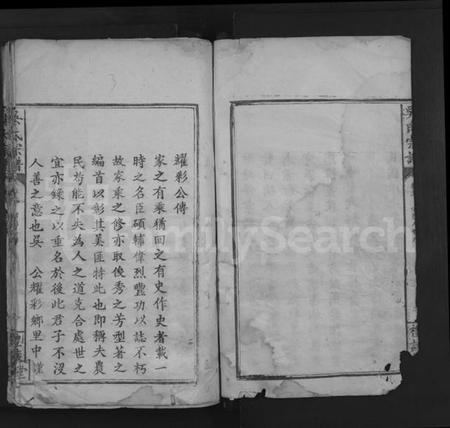 耀彩公傳
家之有乘猶国之有史作史者載一
時之名臣碩輔偉烈豐功以誌不朽
故家乘之修亦取俊秀之芳型著之
編首以彰其美匪特此也即稱夫農
民苟能不失為人之道克合處世之
宜亦錄之以重名於後此君子不沒
人善之意也吳 公耀彩鄉里中謹
吳氏宗譜
FamilySearch